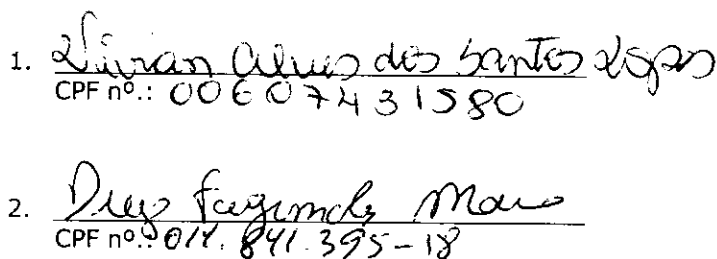 1. Vivian Alves dos Santos Lopes
CPF nº.: 00607431580
2. Diego Fagundes
CPF nº.: 014.841.395-18